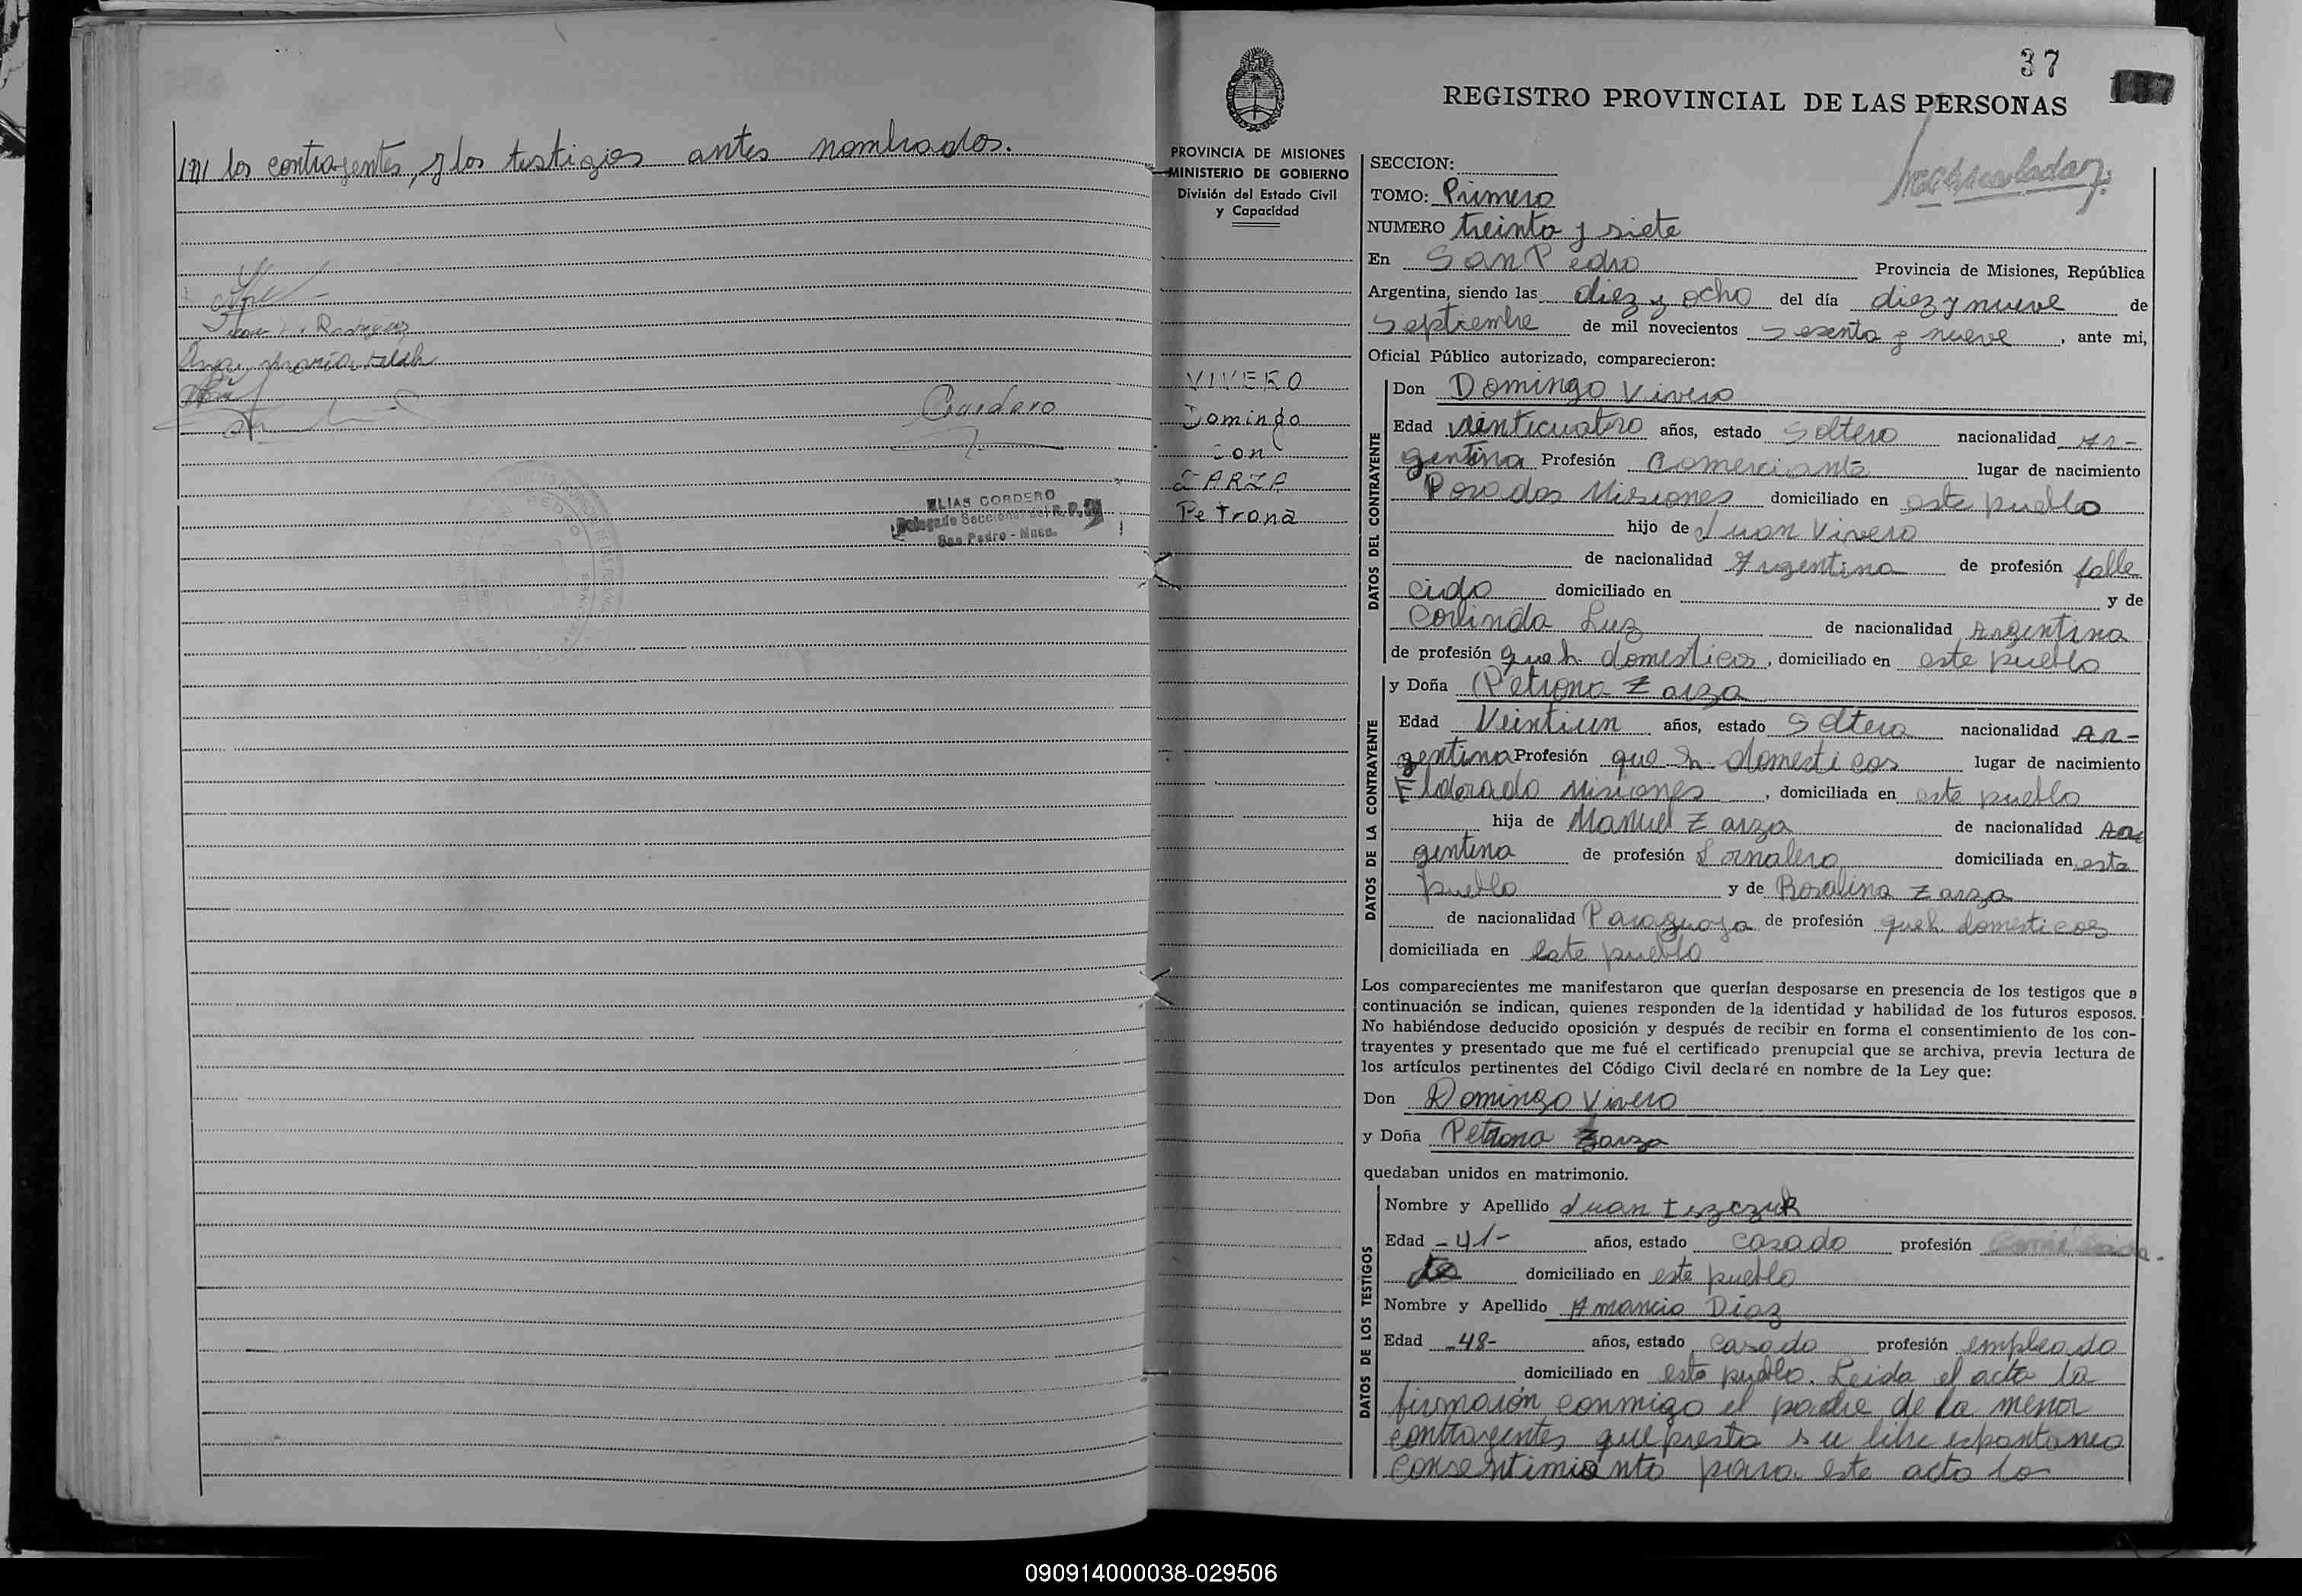 los contrayentes, y los testigos antes nombrados.
Rodriguez
Ana Maria
Cordero
ELIAS CORDERO
Delegado Seccional del R. P.
San Pedro - Mnes.
37
REGISTRO PROVINCIAL DE LAS PERSONAS
PROVINCIA DE MISIONES
MINISTERIO DE GOBIERNO
División del Estado Civil
y Capacidad
VIVERO
Domingo
Con
ZARZA
Petrona
SECCION:
TOMO: Primero
NUMERO treinta y siete
En San Pedro Provincia de Misiones, República
Argentina, siendo las diez y ocho del día diez y nueve de
Septiembre de mil novecientos sesenta y nueve, ante mi,
Oficial Público autorizado, comparecieron:
DATOS DEL CONTRAYENTE
Don Domingo Vivero
Edad veinticuatro años, estado Soltero nacionalidad Ar-
gentina Profesión Comerciante lugar de nacimiento
Posadas Misiones domiciliado en este pueblo
hijo de Juan Vivero
de nacionalidad Argentina de profesión falle
cido domiciliado en y de
Corlinda Luz de nacionalidad Argentina
de profesión queh. domesticos, domiciliado en este pueblo
DATOS DE LA CONTRAYENTE
y Doña Petrona Zarza
Edad Veintiun años, estado Soltera nacionalidad Ar-
gentina Profesión queh domesticos lugar de nacimiento
Eldorado Misiones, domiciliada en este pueblo
hija de Manuel Zarza de nacionalidad Ar
gentina de profesión Jornalero domiciliada en este
pueblo y de Rosalina Zarza
de nacionalidad Paraguaya de profesión queh. domesticos
domiciliada en este pueblo
Los comparecientes me manifestaron que querían desposarse en presencia de los testigos que a
continuación se indican, quienes responden de la identidad y habilidad de los futuros esposos.
No habiéndose deducido oposición y después de recibir en forma el consentimiento de los con-
trayentes y presentado que me fué el certificado prenupcial que se archiva, previa lectura de
los artículos pertinentes del Código Civil declaré en nombre de la Ley que:
Don Domingo Vivero
y Doña Petrona Zarza
quedaban unidos en matrimonio.
DATOS DE LOS TESTIGOS
Nombre y Apellido Juan
Edad -41- años, estado casado profesión
domiciliado en este pueblo
Nombre y Apellido Amancio Diaz
Edad -48- años, estado casado profesión empleado
domiciliado en este pueblo. Leida el acta la
firmarón conmigo el padre de la menor
contrayentes que presta su libre espontaneo
consentimiento para este acto los
090914000038-029506